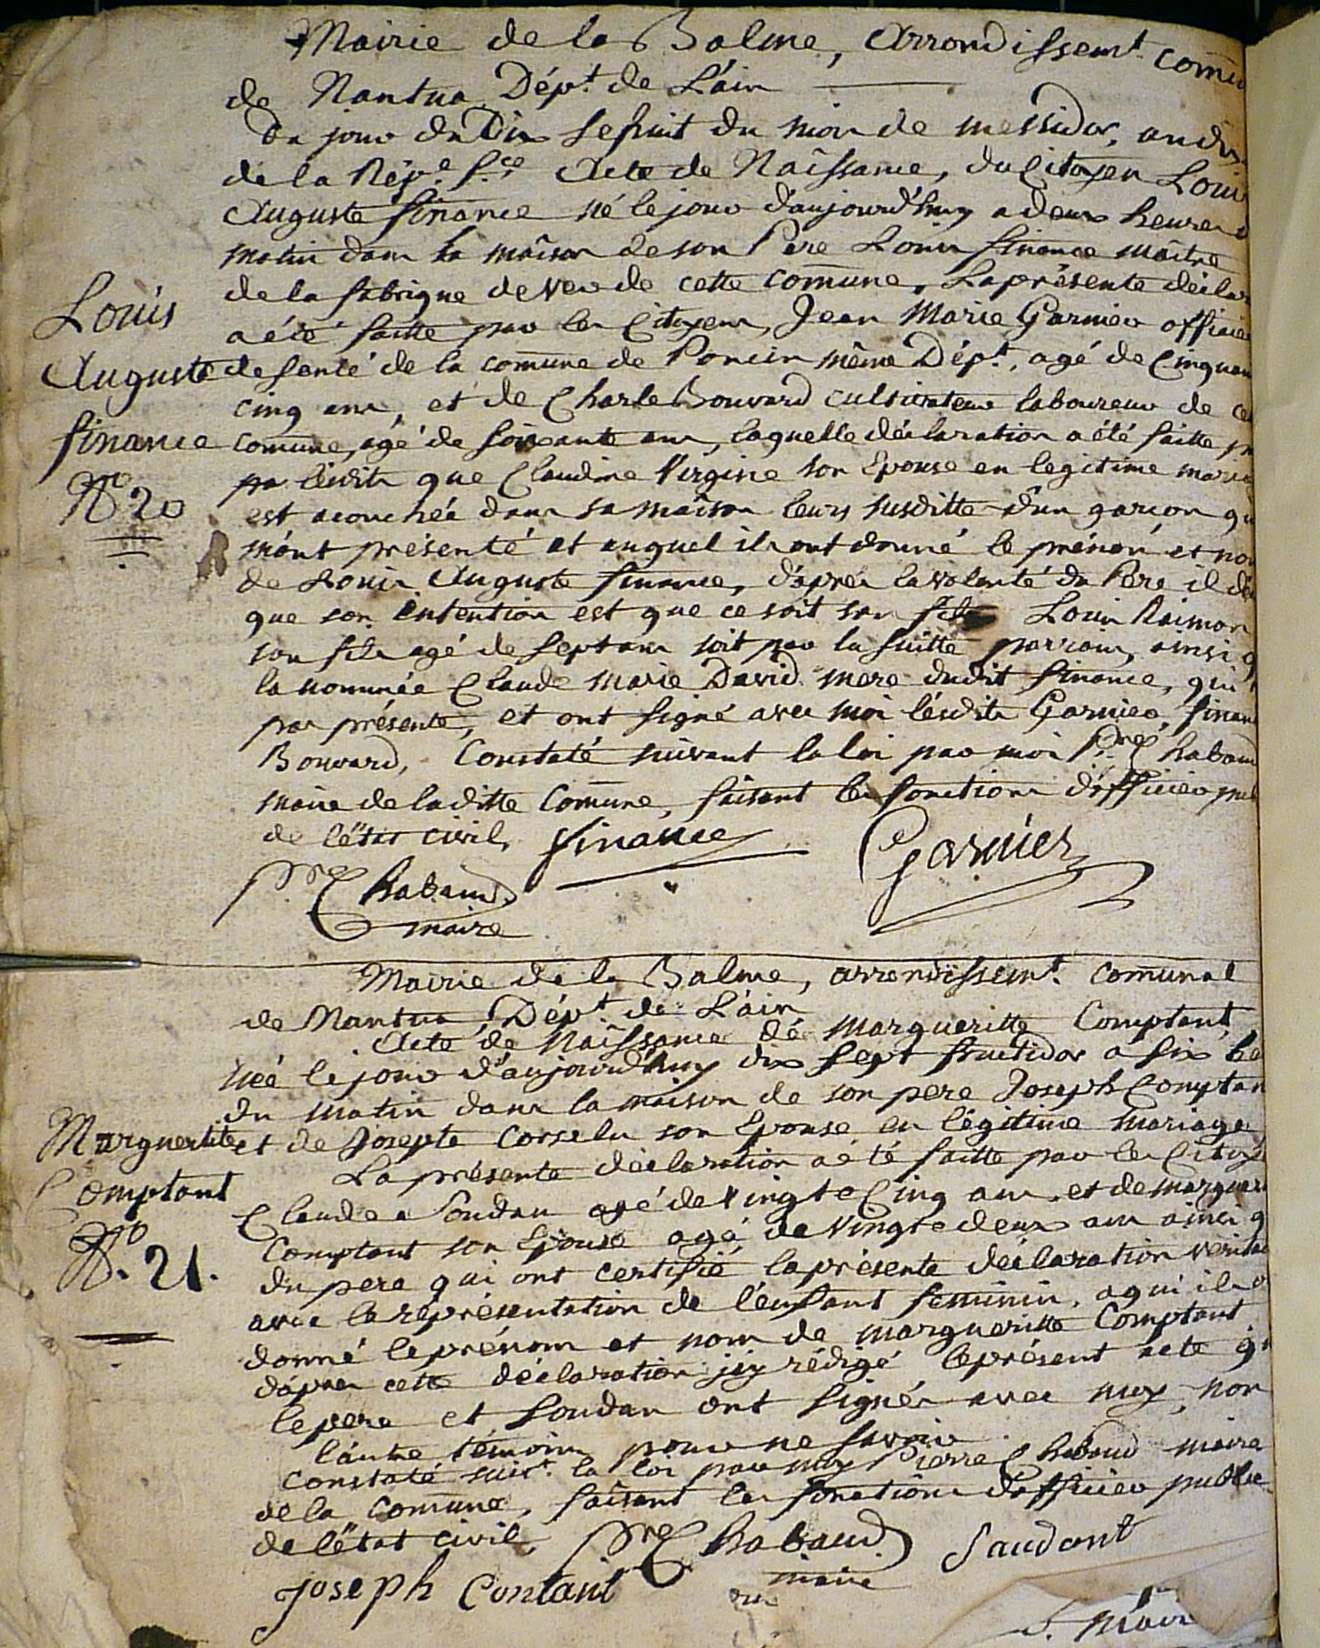 Mairie de la Balme, arrondissemt. comu
de Nantua, Dépt. de L'ain
Du jour du Dix sehuit du mois de messidor, an dix
de la Répe. f.ce Acte de Naissance, du Citoyen Louis
Auguste finance né le jour d'aujourd'huy a deux heures
matin dans la maison de son Pere Louis finance maître
de la fabrique de ver de cette comune. La présente déclar
a été faitte par les Citoyens, Jean Marie Garnier officier
de senté de la comune de Poncin même Dépt. agé de Cinquan
cinq ans, et de Charle Bouvard cultivateur laboureur de ce
comune, agé de soixante ans, laquelle déclaration a été faitte
lesdits que Claudine Virginie son Epouse en legitime mari
est acouchée dans sa maison leurs susditte d'un garçon qu
m'ont présenté et auquel ils ont donné le prénom et nom
de Louis Auguste finance, d'après la volonté du Pere il
que son intention est que ce soit son fils Louis Raimon
son fils agé de sept ans soit par la suitte parrain, ainsi q
la nommée Claude Marie David mere dudit finance, qui
pas présente, et ont signé avec moi lesdits Garnier, finan
Bouvard, Constaté suivant la loi par moi Pre. Chabaud
maire de laditte Comune, faisant les fonctions d'officier pub
de l'état civil, finance Garnier
Pre. Chabaud
maire
Louis
Auguste
finance
No 20
Mairie de la Balme, arrondissemt. comunal
de Nantua, Dépt. de L'ain
Acte de Naissance de Margueritte Comptant
née le jour d'aujourd'huy dix sept fructidor a six he
du matin dans la maison de son pere Joseph Comptan
et de Josepte Corselu son Epouse en légitime mariage
La présente déclaration a été faitte par les Citoy
Claude Soudan agé de vingt e Cinq ans, et de marguer
Comptant son Epouse agé de vingte deux ans ainsi q
du pere qui ont certifié la présente déclaration verita
avec la représentation de l'enfant feminin, a qui ils o
donné le prénom et nom de margueritte Comptant
d'après cette déclaration j'ay rédigé le présent acte q
le pere et Soudan ont signés avec moy, non
l'autre témoins pour ne savoir
Constaté suivt. la loi par moy Pierre Chabaud maire
de la comune, faisant les fonctions d'officier public
de l'état civil, Pre Chabaud Saudant
Joseph Contant maire
Marguerite
Comptant
No. 21.